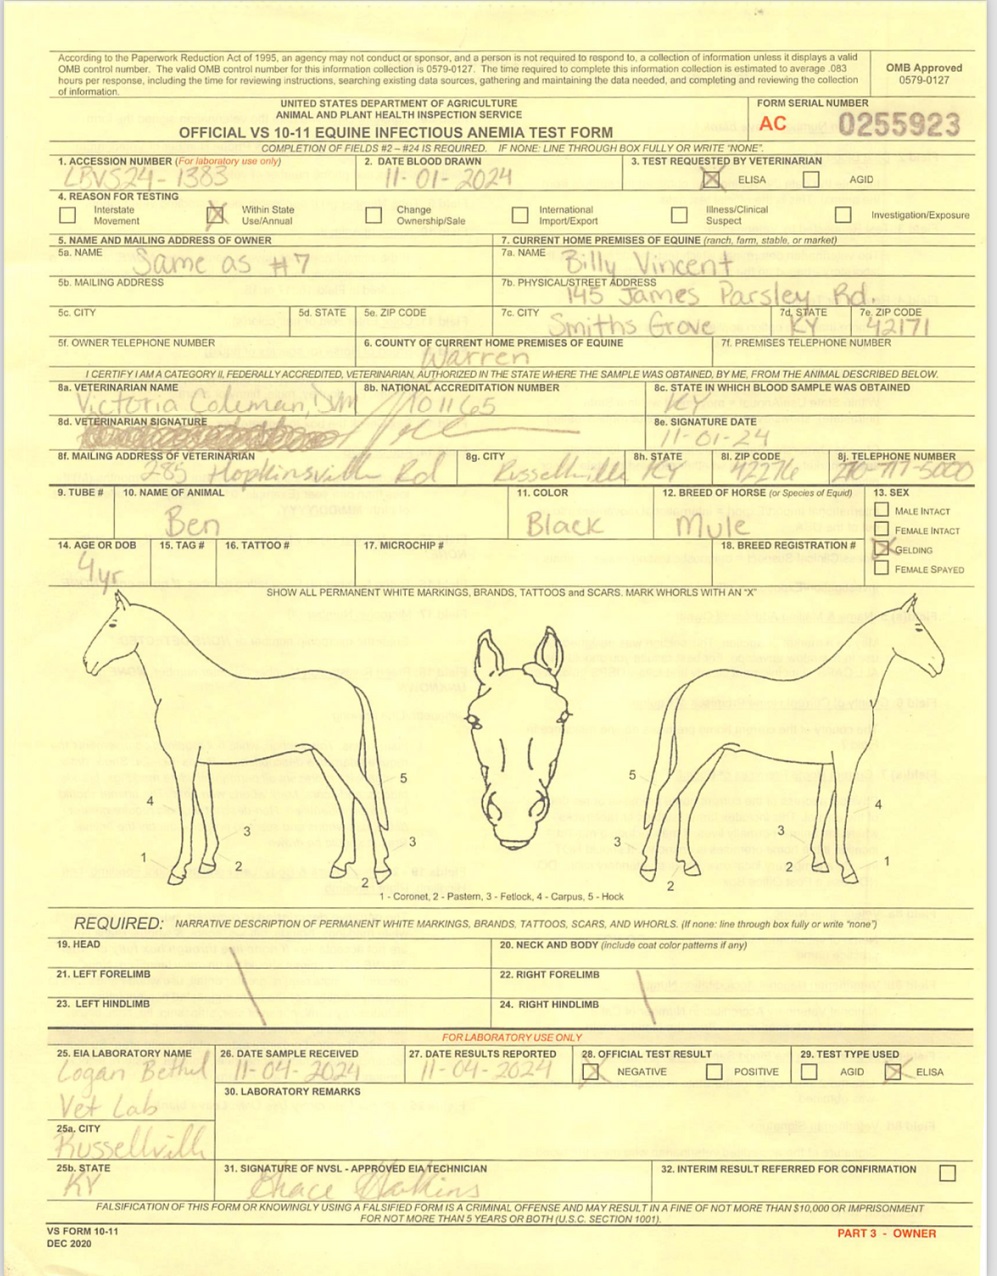 According to the Paperwork Reduction Act of 1995, an agency may not conduct or sponsor, and a person is not required to respond to, a collection of information unless it displays a valid
OMB control number. The valid OMB control number for this information collection is 0579-0127. The time required to complete this information collection is estimated to average .083
hours per response, including the time for reviewing instructions, searching existing data sources, gathering and maintaining the data needed, and completing and reviewing the collection
of information.
OMB Approved
0579-0127
UNITED STATES DEPARTMENT OF AGRICULTURE
ANIMAL AND PLANT HEALTH INSPECTION SERVICE
OFFICIAL VS 10-11 EQUINE INFECTIOUS ANEMIA TEST FORM
FORM SERIAL NUMBER
AC 0255923
COMPLETION OF FIELDS #2 – #24 IS REQUIRED. IF NONE: LINE THROUGH BOX FULLY OR WRITE "NONE".
1. ACCESSION NUMBER (For laboratory use only)
LBVS24-1383
2. DATE BLOOD DRAWN
11-01-2024
3. TEST REQUESTED BY VETERINARIAN
ELISA AGID
4. REASON FOR TESTING
Interstate Movement
Within State Use/Annual
Change Ownership/Sale
International Import/Export
Illness/Clinical Suspect
Investigation/Exposure
5. NAME AND MAILING ADDRESS OF OWNER
7. CURRENT HOME PREMISES OF EQUINE (ranch, farm, stable, or market)
5a. NAME
Same as #7
7a. NAME
Billy Vincent
5b. MAILING ADDRESS
7b. PHYSICAL/STREET ADDRESS
145 James Parsley Rd.
5c. CITY
5d. STATE
5e. ZIP CODE
7c. CITY
Smiths Grove
7d. STATE
KY
7e. ZIP CODE
42171
5f. OWNER TELEPHONE NUMBER
6. COUNTY OF CURRENT HOME PREMISES OF EQUINE
Warren
7f. PREMISES TELEPHONE NUMBER
I CERTIFY I AM A CATEGORY II, FEDERALLY ACCREDITED, VETERINARIAN, AUTHORIZED IN THE STATE WHERE THE SAMPLE WAS OBTAINED, BY ME, FROM THE ANIMAL DESCRIBED BELOW.
8a. VETERINARIAN NAME
Victoria Coleman, DVM
8b. NATIONAL ACCREDITATION NUMBER
101165
8c. STATE IN WHICH BLOOD SAMPLE WAS OBTAINED
KY
8d. VETERINARIAN SIGNATURE
8e. SIGNATURE DATE
11-01-24
8f. MAILING ADDRESS OF VETERINARIAN
285 Hopkinsville Rd
8g. CITY
Russellville
8h. STATE
KY
8I. ZIP CODE
42276
8j. TELEPHONE NUMBER
9. TUBE #
10. NAME OF ANIMAL
Ben
11. COLOR
Black
12. BREED OF HORSE (or Species of Equid)
Mule
13. SEX
MALE INTACT
FEMALE INTACT
GELDING
FEMALE SPAYED
14. AGE OR DOB
4yr
15. TAG #
16. TATTOO #
17. MICROCHIP #
18. BREED REGISTRATION #
SHOW ALL PERMANENT WHITE MARKINGS, BRANDS, TATTOOS and SCARS. MARK WHORLS WITH AN "X"
5
4
3
1
2
3
2
5
4
3
3
2
1
2
1 - Coronet, 2 - Pastern, 3 - Fetlock, 4 - Carpus, 5 - Hock
REQUIRED: NARRATIVE DESCRIPTION OF PERMANENT WHITE MARKINGS, BRANDS, TATTOOS, SCARS, AND WHORLS. (If none: line through box fully or write "none")
19. HEAD
20. NECK AND BODY (include coat color patterns if any)
21. LEFT FORELIMB
22. RIGHT FORELIMB
23. LEFT HINDLIMB
24. RIGHT HINDLIMB
FOR LABORATORY USE ONLY
25. EIA LABORATORY NAME
Logan Bethel
Vet Lab
26. DATE SAMPLE RECEIVED
11-04-2024
27. DATE RESULTS REPORTED
11-04-2024
28. OFFICIAL TEST RESULT
NEGATIVE POSITIVE
29. TEST TYPE USED
AGID ELISA
30. LABORATORY REMARKS
25a. CITY
Russellville
25b. STATE
KY
31. SIGNATURE OF NVSL - APPROVED EIA TECHNICIAN
32. INTERIM RESULT REFERRED FOR CONFIRMATION
FALSIFICATION OF THIS FORM OR KNOWINGLY USING A FALSIFIED FORM IS A CRIMINAL OFFENSE AND MAY RESULT IN A FINE OF NOT MORE THAN $10,000 OR IMPRISONMENT
FOR NOT MORE THAN 5 YEARS OR BOTH (U.S.C. SECTION 1001).
VS FORM 10-11
DEC 2020
PART 3 - OWNER